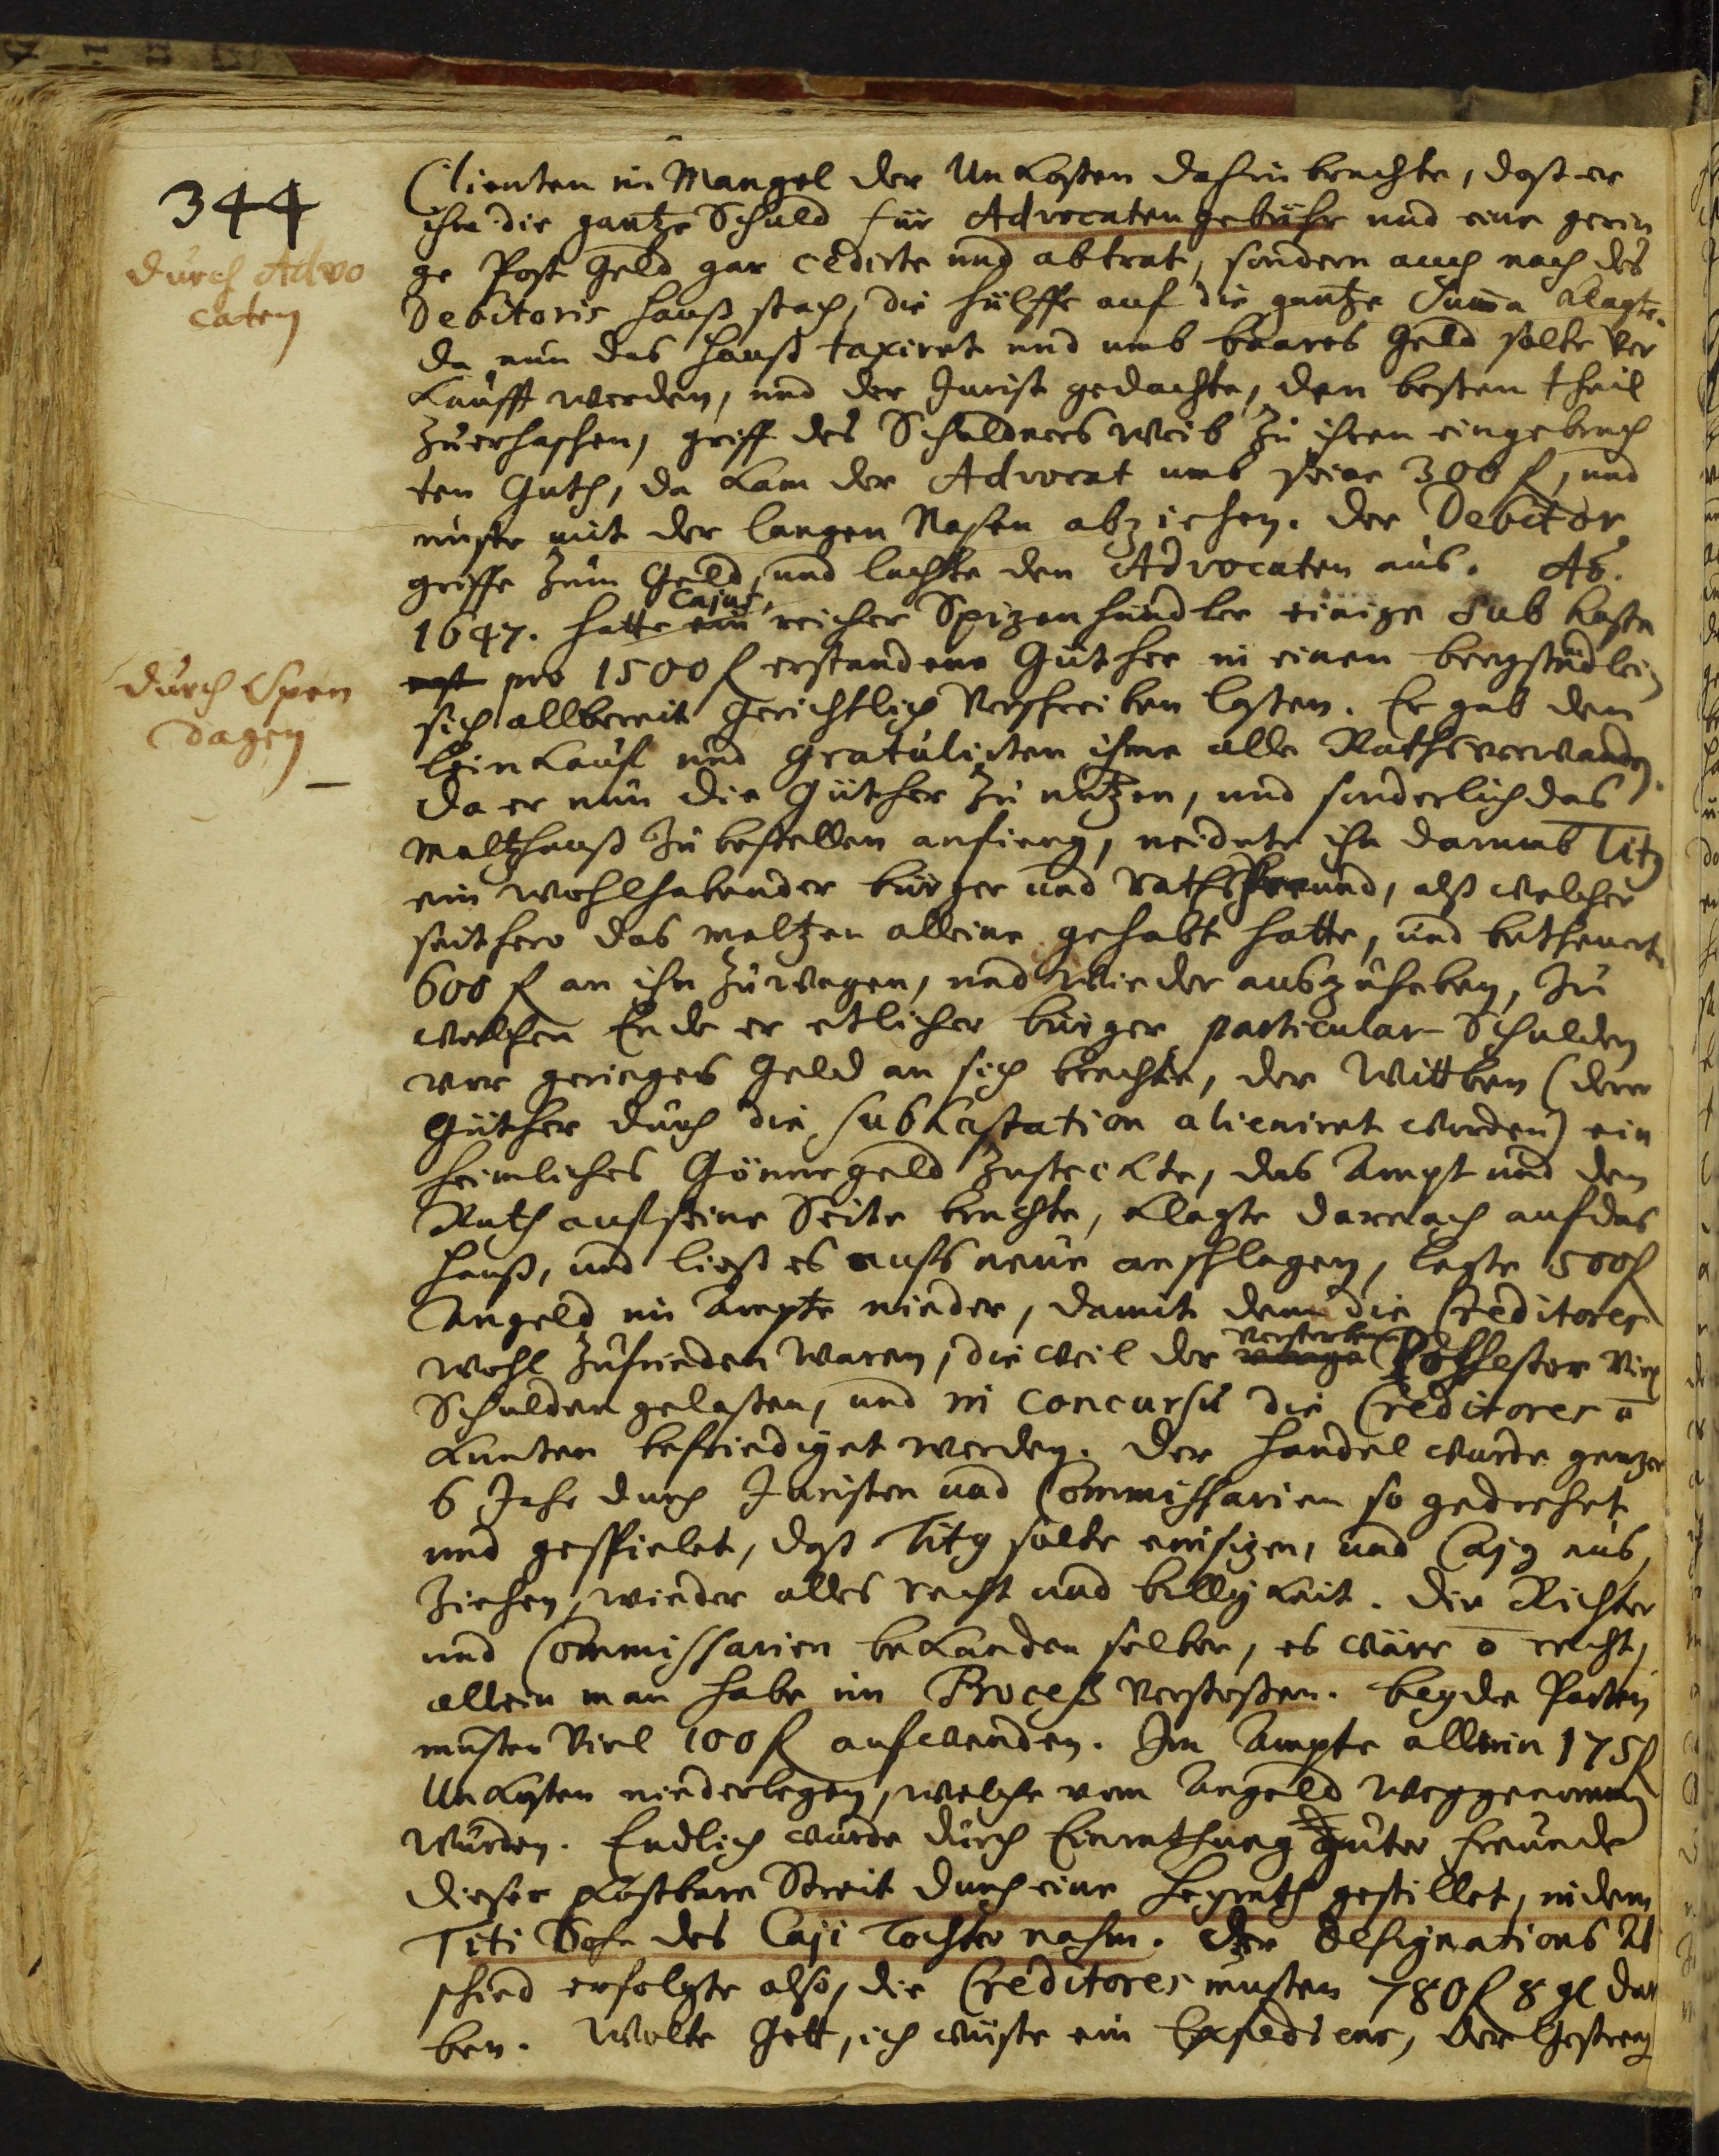 344
durch Advo
caten
Clienten in Mangel der Unkosten dahin brachte, daß er
ihm die gantze Schuld für Advocaten gebühr und eine gerin
ge Post Geld gar cedirte und abtrat, sondern auch nach des
Debitoris Hauß stach, die hülffe auf die gantze Suma klagte.
da nun das Hauß taxiret und umb baares Geld solte ver
kaufft werden, und der Jurist gedachte, den besten theil
zuerhaschen, griff des Schuldners Weib zu ihren eingebrach
ten Guth, da kam der Advocat umb seine 300 fl, und
muste mit der langen Nasen abziehen. der Debitor
griffe zum Geld, und lachte den Advocaten aus. Ao.
1647. hatte ein Cajus, reicher Spizenhändler einige Sub hasta
pro 1500 fl erstandene Güther in einen bergstädlein
durch Spen
dagen
sich allbereit Gerichtlich verschreiben lassen. Er gab den
Leinkauf und gratulirten ihme alle Rathsverwanden.
da er nun die Güther zu nutzen, und sonderlich das
Maltzhauß zu bestellen anfieng, neidete ihn darumb Titg
ein wohlhabender bürger und Rathsfreund, alß welcher
seithero das maltzen alleine gehabt hatte, und betheuert
600 fl an ihn zuwagen, und wieder auszuheben, zu
welchen Ende er etlicher bürger particular Schulden
vor geringes Geld an sich brachte, der Wittben (deren
Güther durch die subhastation alieniret worden) ein
heimliches Gönnegeld zusteckte, das Ampt und den
Rath auf seine Seite brachte, klagte darnach auf das
Hauß, und ließ es aufs neue anschlagen, legte 500 fl
Angeld im Ampte nieder, damit denn die Creditores
wohl zufrieden waren, die weil der verstorbene viel
Schulden gelassen, und in Concursu die Creditores ō
kunten befriediget werden. der Handel wurde gantzer
6 Jahr durch Juristen und Commissarien so gedrehet
und gespielet, daß Titg solte einsizen, und Cajg aus,
ziehen, wieder alles recht und billigkeit. die Richter
und Commissarien bekanden selber, es wäre ō recht,
allein man habe im Proceß verstoßen. beyde Parten
musten viel 100 fl aufwenden. Im Ampte allein 175 fl
Unkosten niederlegen, welche vom Angeld weggenommen
wurden. Endlich wurde durch Einrathung guter freunde
dieser kostbare Streit durch eine Heyrath gestillet, indem
Titi Sohn des Caji Tochter nahm. der Designations Ab
schied erfolgte also, die Creditores musten 780 fl 8 gl dar
ben. Wolte Gott, ich wüste ein Expediens, der Gestreng